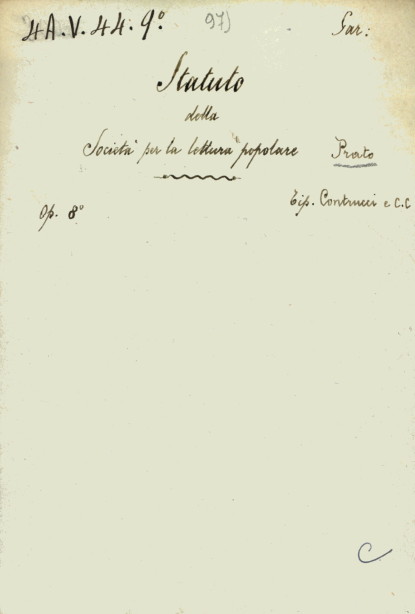 4A.V.44.9º. 97) Gar:
Statuto
della
Società per la lettura popolare Prato
Op. 8º Tip. Contrucci e C.C
C